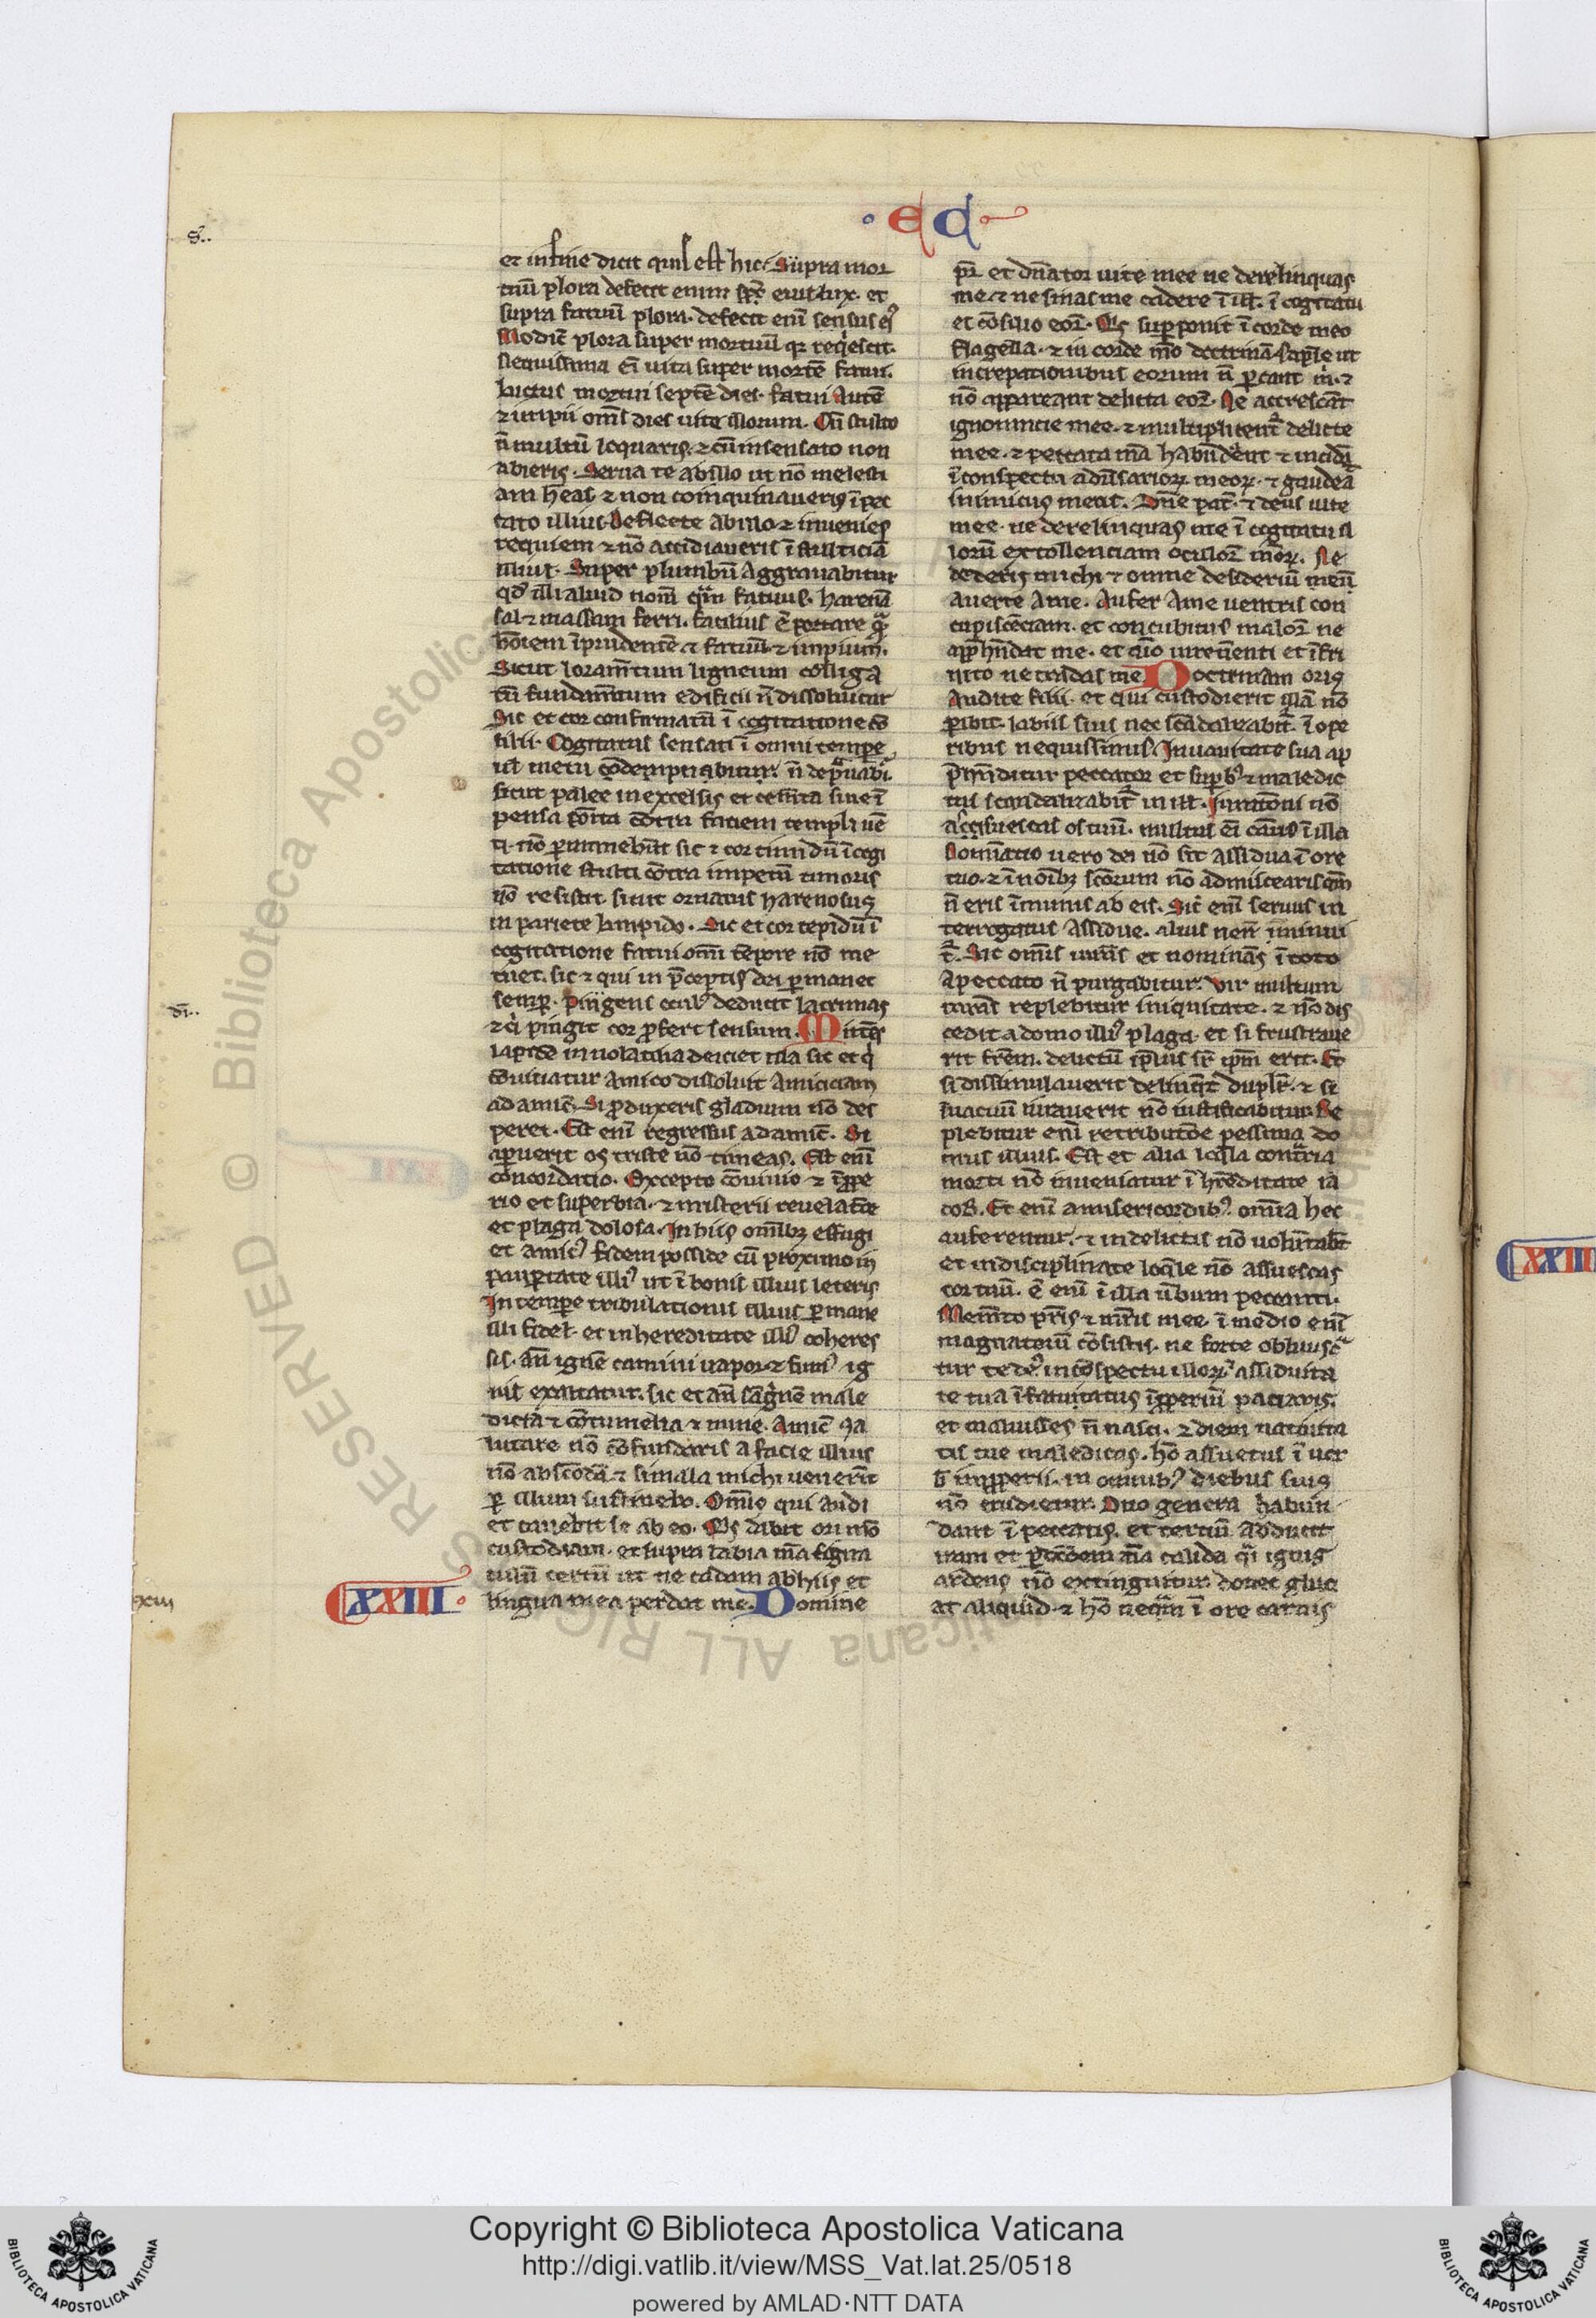 · e d ·
S..
et in fine dicit quis est hic. Supra mor
tuū plora defecit enim lux eius lux. et
supra fatuū plora. defecit enī sensus eꝰ
Modic̄ plora super mortuū qr reqͥescit.
Nequissima eī uita super mortē fatui.
luctus mortui septē dies. fatui autē
⁊ impii om̄s dies uite illorum. Cū stulto
n̄ multū loquaris. ⁊ cū insensato non
abieris. Serua te ab illo ut nō molesti
am h̄eas ⁊ non coinquinaueris ī pec
cato illius. Deflecte ab illo ⁊ inuenies
requiem ⁊ nō accidiaueris ī stulticia
illius. Super plumbū aggrauabitur
qd̄ illi aliud nom̄ qͣm fatuus. harenā
sal ⁊ massam ferri. facilius ē portare qͣ
hoīem īprudentē ⁊ fatuū ⁊ impium.
Sicut loram̄tum ligneum colliga
tū fundam̄tum edificii n̄ dissoluitur
Sic et cor confirmatū ī cogitatione cō
silii. Cogitatus sensati ī omni tempe
ul̄ metu
sicut palee in excelsis et cem̄ta sine ī
pensa posita cōtra faciem uenti
ti. nō ꝑmanebūt sic ⁊ cor timidū ī cogi
tatione stulti cōtra impetū timoris
nō resistit. sicut ornatus harenosus
in pariete limpido. Sic et cor tepidū ī
cogitatione fatui om̄i tēpore nō me
tuet. sic ⁊ qui in p̄ceptis dei ꝑmanet
semꝑ. Pūgens oculū deducit lacrimas
di..
⁊ qͥ pūgit cor ꝓfert sensum. Mittēs
lapidē in uolatilia deiciet illa sic et qͥ
cōuitiatur amico dissoluit amiciciam
ad amic̄. Si ꝓduxeris gladium nō des
peres. Est enī regressus ad amic̄. Si
aꝑuerit os triste nō timeas. Est enī
concordatio. Excepto cōuicio ⁊ īꝓpe
rio et superbia. ⁊ misterii reuelatōe
et plaga dolosa. In hiis omībꝫ effugi
et amicꝰ fidem posside cū proximo in
pauꝑtate illiꝰ ut ī bonis illius leteris
In tempe tribulationis illius ꝑmane
illi fidel̄ et in hereditate illiꝰ coheres
sis. an̄ ignē camini uapor ⁊ fumꝰ ig
nis exaltatur. sic et an̄ sāgͥnē male
dicta ⁊ cōtumelia ⁊ mine. Amic̄ sa
lutare nō cōfundaris a facie illius
nō abscōdā ⁊ si mala michi uenerīt
ꝑ illum sustinebo. Omīs qui audi
et cauebit se ab eo. Qͥs dabit ori mō
custodiam. et supra labia mēa signa
culū certū ut ne cadam ab hiis et
xxiii
XXIII.
lingua mea perdat me. Domine
pr̄ et dn̄ator uite mee ne derelinquas
me ⁊ ne sinas me cadere ī ill̄. ī cogitatu
et cōsilio eoꝝ. Qͥs supponit ī corde meo
flagella. ⁊ in corde mēo doctrinā sapīe ut
increpationibus eorum n̄ ꝑcant mͥ. ⁊
nō appareant delicta eoꝝ. Ne accrescāt
ignorancie mee. ⁊ multiplicent̄ delicta
mee. ⁊ peccata mēa habūdent ⁊ incidā
ī conspectu aduersarioꝝ meoꝝ. ⁊ gaudeā
inimicus meus. Dn̄e pat̄ ⁊ deus uite
mee. ne derelinquas me ī cogitatu il
lorū extollenciam oculoꝝ meoꝝ. Ne
dederis michi ⁊ omne desideriū meū
auerte a me. Aufer a me uentris con
cupiscēciam. et concubitus maloꝝ ne
app̄hn̄dat me. et aīo irreuerenti et īfru
nito ne tradas me. Doctrinam oris
Audite filii. et qui custodierit illā nō
ꝑibit. labiis suis nec scādalizabit̄ ī ope
ribus nequissimis. In uanitate sua ap
p̄hn̄ditur peccator et suꝑbꝰ ⁊ maledic
tus scandalizabit̄ in ill̄. Iurationi nō
assuescas os tuū. multus eī casus ī illa
Nominatio uero dei nō sit assidua ī ore
tuo. ⁊ ī noībꝫ scōrum nō admiscearis qm̄
n̄ eris īmunis ab eis. Sic̄ enī seruus in
terrogatus assidue. aliuor nō minui
t̄. Sic om̄is iurās et nominās ī toto
a peccato n̄ purgabitur. Vir multum
iurās replebitur iniquitate. ⁊ nō dis
cedit a domo illiꝰ plaga. et si frustraue
rit frēm. delictū ipsius suꝑ ipm̄ erit. Et
si dissimulauerit delinqͥt dupl̄r. ⁊ si
in uacuū iurauerit nō iustificabitur. Re
plebitur enī retributōe pessima do
mus illius. Est et alia loqͤla contͣria
morti nō inueniatur ī hr̄editate ia
cob. Et enī a misericordibꝰ omīa hec
auferentur. ⁊ in delictis nō uolūtabt̄
et indisciplinate loqͤle nō assuescas
cor tuū. ē enī ī illa ūbum peccati.
Mem̄to pr̄is ⁊ mr̄is mee. ī medio enī
magnatorū cōsistis. ne forte obliuisca
tur te dꝰ in cōspectu illoꝝ. ⁊ assiduita
te tua īfatuatus īꝓperiū paciaris.
et maluisses n̄ nasci. ⁊ diem natiuita
tis tue maledicas. hō assuetus ī uer
b īꝓperii. in omnibꝰ diebus suis
nō erudietur. Duo genera habun
dant ī peccatis. et tertiū adducit
iram et ꝑdicōem aīa calida qͣi ignis
ardens nō extinguitur donec glua
at aliquid. ⁊ hō neqͣm ī ore carnis
XXIII
Copyright © Biblioteca Apostolica Vaticana
http://digi.vatlib.it/view/MSS_Vat.lat.25/0518
powered by AMLAD·NTT DATA
BIBLIOTECA APOSTOLICA VATICANA
BIBLIOTECA APOSTOLICA VATICANA